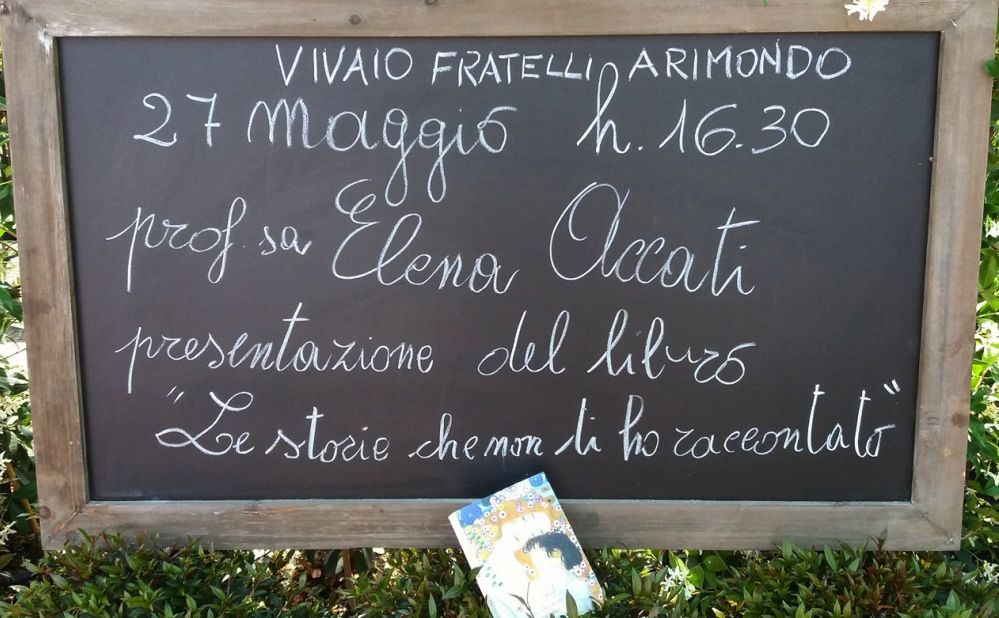 VIVAIO FRATELLI ARIMONDO
27 Maggio h. 16.30
prof.sa Elena Accati
presentazione del libro
"Le storie che non ti ho raccontato"